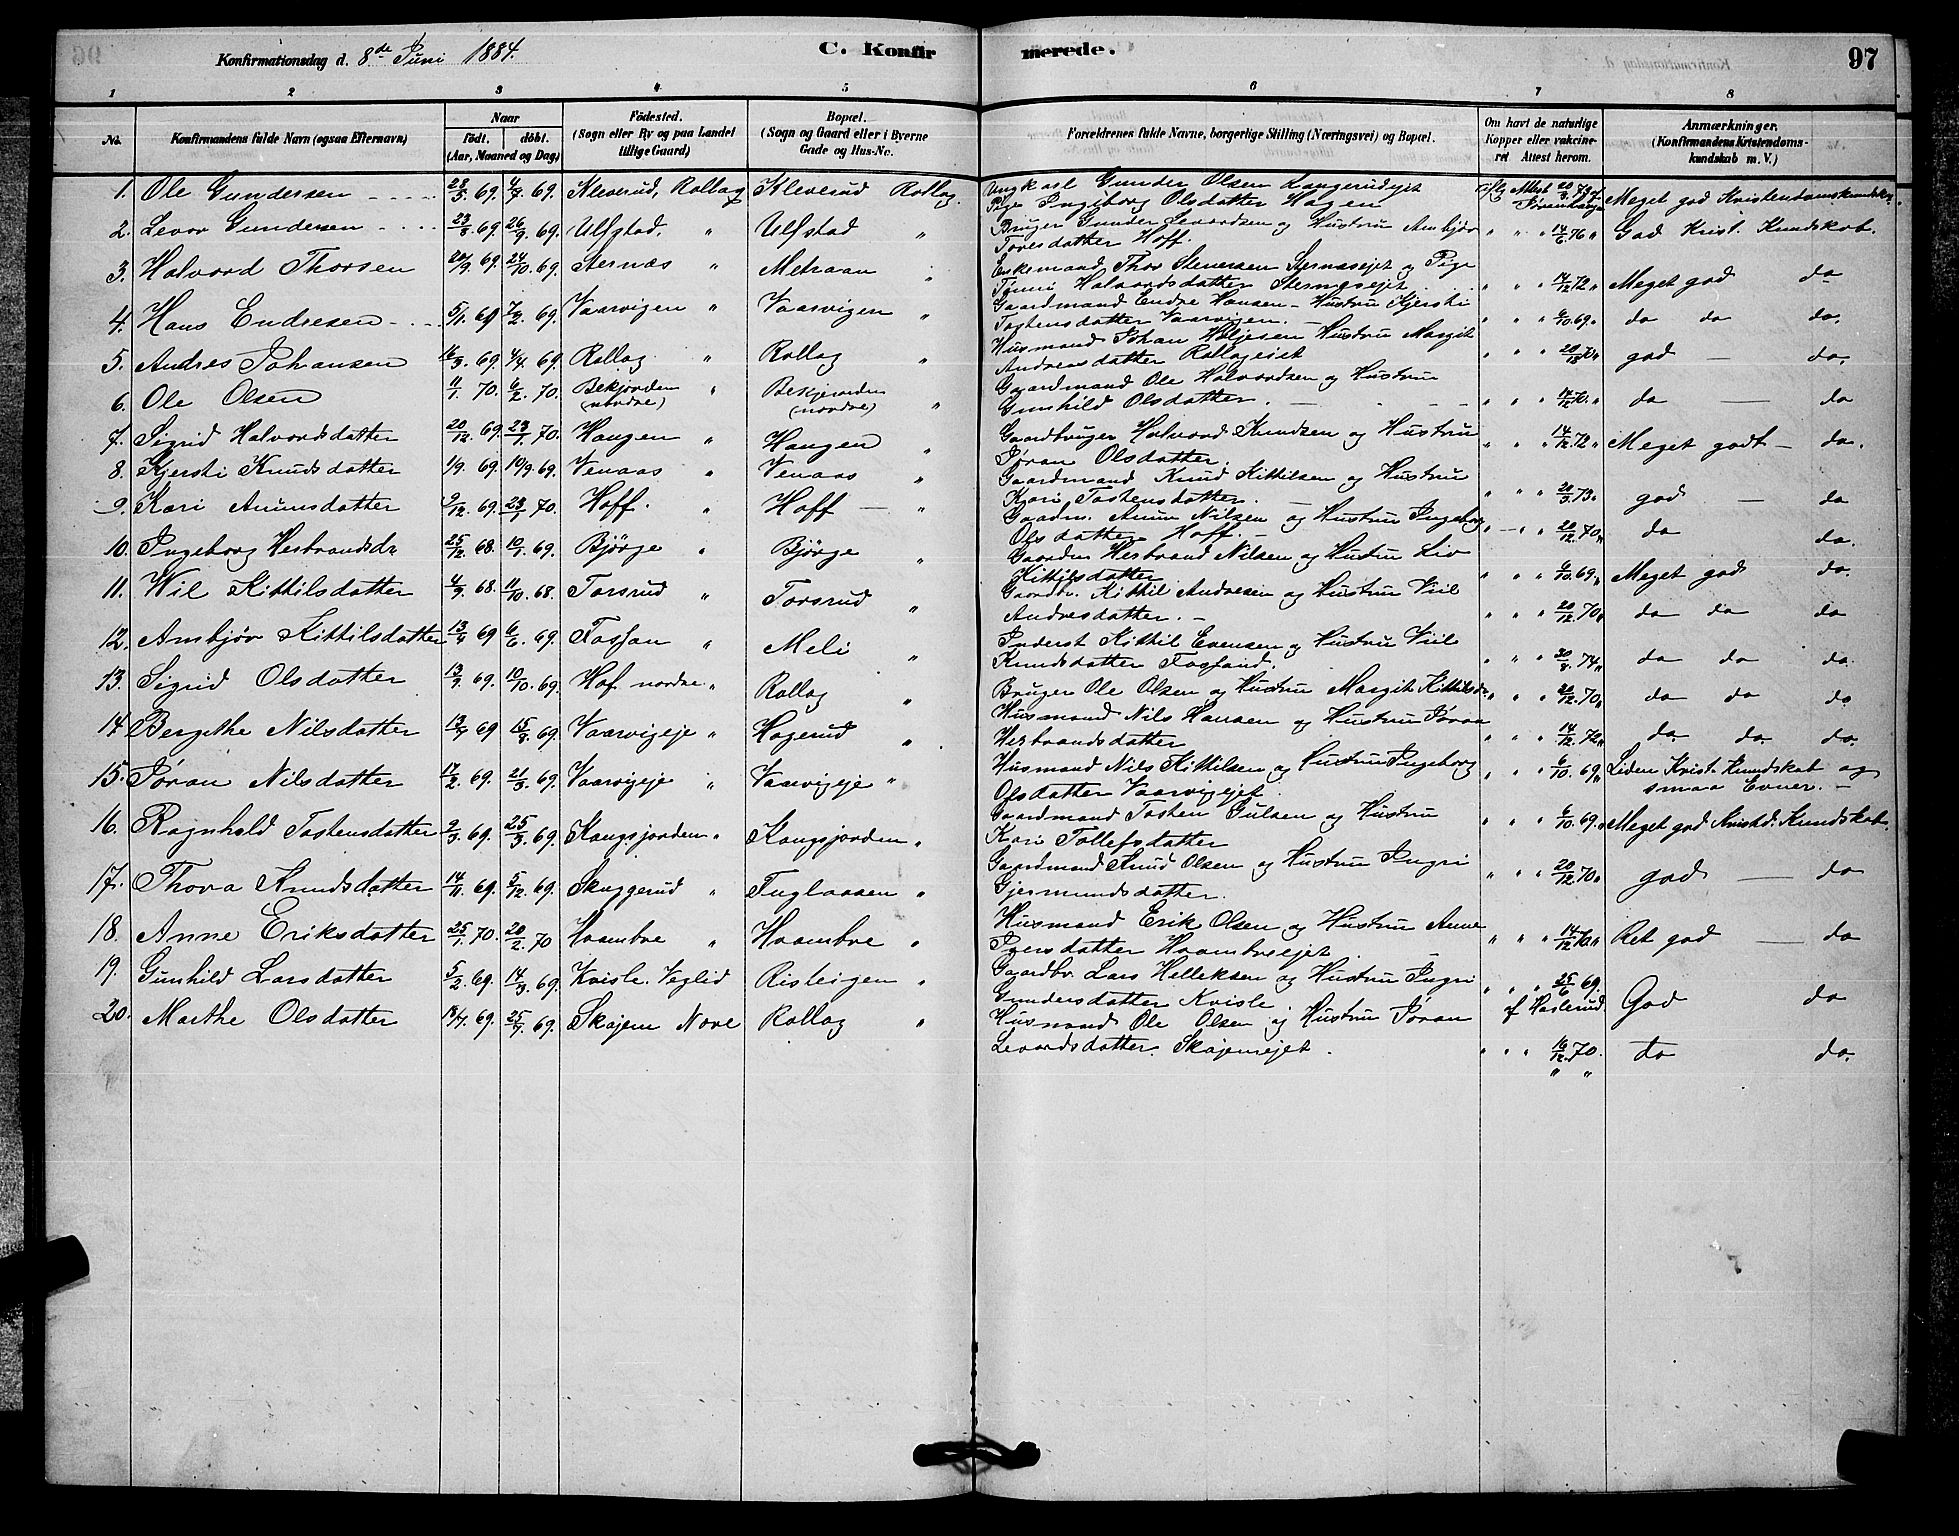 Konfirmationsdag d. 8de Juni 1884.
C. Konfir merede.
97
1 2 3 4 5 6 7 8
No. Konfirmandens fulde Navn (ogsaa Efternavn) Naar født, døbt. (Aar, Maaned og Dag) Fødested. (Sogn eller By og paa Landet tillige Gaard) Bopæl. (Sogn og Gaard eller i Byerne Gade og Hus-No. Forældrenes fulde Navne, borgerlige Stilling (Næringsvei) og Bopæl. Om havt de naturlige Kopper eller vakcineret Attest herom. Anmærkninger. (Konfirmandens Kristendomskundskab m. V.)
1. Ole Gundersen 69. 69. Kleverud, Rollag Kleverud Rollag. Ungkarl Gunder Olsen
Pige Ingeborg Olsdatter Hagen Meget god Kristendomskundskab
2. Levor Gundersen 23/8 69 26/9 69. Ulfstad, " Ulfstad " Bruger Gunder Levordsen og Hustru Ambjør
Toresdatter Hoff. " " 14/6 76 " God Krist. Kundskab.
3. Halvord Thorsen 20/9 69. 24/10 69. Sternæs " Metraan " Enkemand Thor Stenersen Sternæsejet og Pige
Tønni Halvordsdatter Sternæsejet. " " 14/12 72 " Meget god do
4. Hans Endresen 5/1 69 7/2 69. Vaarvigen " Vaarvigen " Gaardmand Endre Hansen - Hustru Kjersti
Tostensdatter Vaarvigen. " " 6/10 69. do do do.
5. Andres Johansen 16/3 69. 4/4 69. Rollag " Rollag " Husmand Johan Holjesen Hustru Margit
Andresdatter Rollageiet " " god — do.
6. Ole Olsen 11/1 70. 6/2 70. Bekjorden (nordre) " Bekjorden (nordre) " Gaardmand Ole Halvordsen og Hustru
Gunhild Olsdatter. " " do — do
7. Sigrid Halvordsdatter 20/12 69. 23/1 70. Haugen " Haugen " Gaardbruger Halvord Knudsen og Hustru
Jøran Olsdatter. " " 14/12 72 " Meget godt — do.
8. Kjersti Knudsdatter 1/9 69. 10/9 69. Venaas " Venaas " Gaardmand Knud Kittilsen og Hustru
Kari Tostensdatter. " " 20/3 73 " god — do
9. Kari Anunsdatter 9/12 69. 23/1 70. Hoff. " Hoff — " Gaardm. Anun Nilsen og Hustru Ingeborg
Olsdatter Hoff. — " " 20/12 70 " do do.
10. Ingeborg Herbrandsdr 25/12 68. 10/1 69. Bjørge " Bjørge " Gaardm. Herbrand Nilsen og Hustru Liv
Kittilsdatter " " 6/10 69 " Meget god do.
11. Wil Kittilsdatter 4/9 68. 11/10 68. Torsrud " Torsrud " Gaardbr. Kittil Andresen og Hustru Viil
Andresdatter. — " " 20/12 70 " do do do
12. Ambjør Kittilsdatter 13/4 69 6/6 69. " Meli " Inderst Kittil Evensen og Hustru Viil
Knudsdatter " " 30/8 74 " do do do.
13. Sigrid Olsdatter 13/9 69. 10/10 69. Hof nordre " Rollag " Bruger Ole Olsen og Hustru Margit Kittilsdr " " 20/12 70 " do do do
14 Bergithe Nilsdatter 69 69. Vaarvigeje " Hagerud " Husmand Nils Hansen og Hustru Jøran
Herbrandsdatter " " 14/12 72 " do. do. do.
15. Jøran Nilsdatter 17/2 69. 21/3 69. Vaarvigeje " Vaarvigeje " Husmand Nils Kittilsen og Hustru Ingeborg
Olsdatter Vaarvigejet. " " 6/10 69 " Liden Krist. Kundskab og
smaa Evner. —
16. Ragnhild Tostensdatter 2/3 69. 25/3 69. Kongsjorden " Kongsjorden " Gaardmand Tosten Juls​en og Hustru
Kari Tollefsdatter " " 6/10 69 " Meget god Kristd. Kundskab.
17. Thora Knudsdatter 14/11 69. 5/12 69. Skuggerud " Fuglaasen " Gaardmand Knud Olsen og Hustru Ingri
Gjermundsdatter. " " 20/12 70 " god — do
18. Anne Eriksdatter 25/1 70. 20/2 70 Hvambre " Hvambre " Husmand Erik Olsen og Hustru Anne
Iversdatter Hvambreejet. " " 14/12 70 " Ret god — do
19. Gunhild Larsdatter 5/2 69. 14/3 69. Kvisle. Veglid Risteigen " Gaardbr. Lars Helleksen og Hustru Ingri
Gundersdatter Kvisle. " " 25/6 69. af Haslerud God do
20. Marthe Olsdatter 69. 69. Skajem Nore Rollag " Husmand Ole Olsen og Hustru Jøran
Levordsdatter. Skajemejet. " " " 16/12 70. do do.
" "